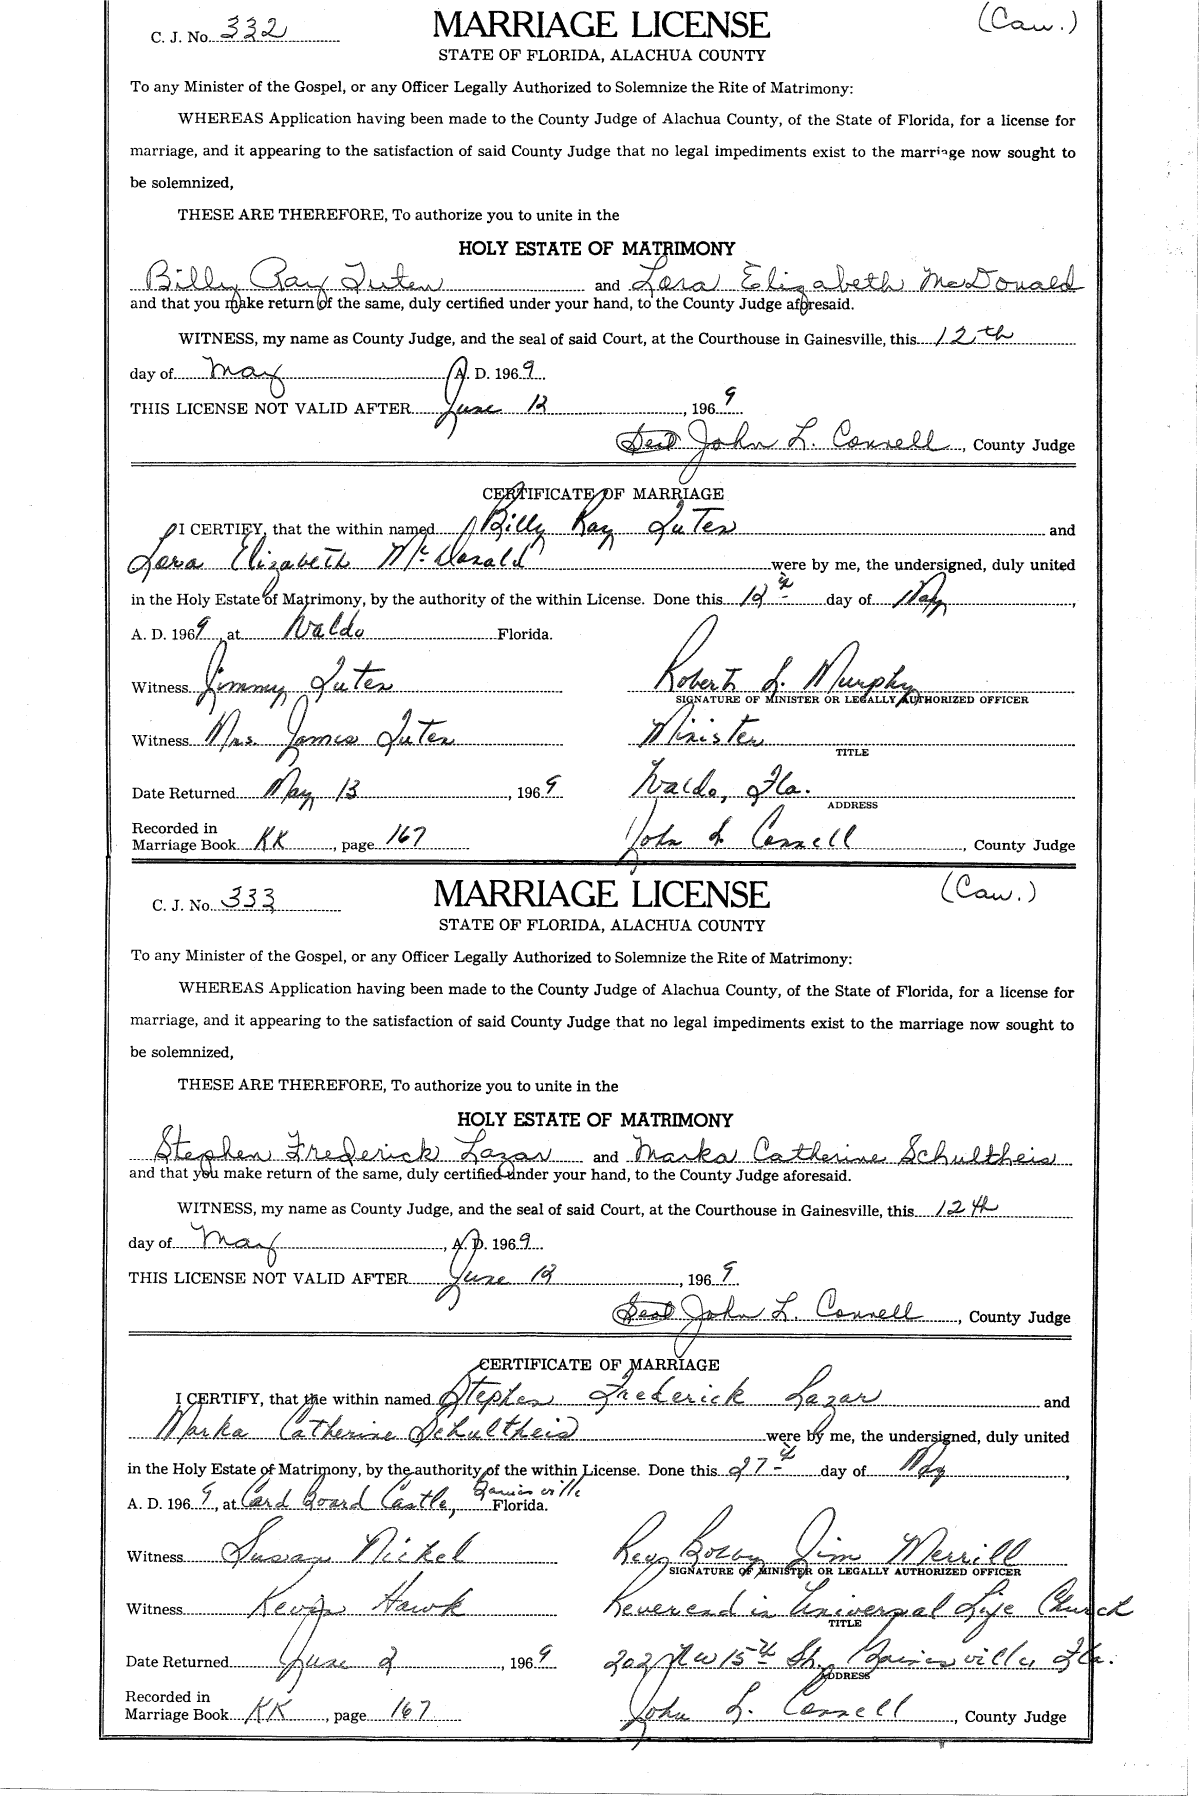 C. J. No. 332 MARRIAGE LICENSE (Caw.)
STATE OF FLORIDA, ALACHUA COUNTY
To any Minister of the Gospel, or any Officer Legally Authorized to Solemnize the Rite of Matrimony:
WHEREAS Application having been made to the County Judge of Alachua County, of the State of Florida, for a license for
marriage, and it appearing to the satisfaction of said County Judge that no legal impediments exist to the marriage now sought to
be solemnized,
THESE ARE THEREFORE, To authorize you to unite in the
HOLY ESTATE OF MATRIMONY
Billy Ray Tuten and Lora Elizabeth McDonald
and that you make return of the same, duly certified under your hand, to the County Judge aforesaid.
WITNESS, my name as County Judge, and the seal of said Court, at the Courthouse in Gainesville, this 12th
day of May A. D. 1969
THIS LICENSE NOT VALID AFTER June 12, 1969
Seal John L. Connell, County Judge
CERTIFICATE OF MARRIAGE
I CERTIFY, that the within named Billy Ray Tuten and
Lora Elizabeth McDonald were by me, the undersigned, duly united
in the Holy Estate of Matrimony, by the authority of the within License. Done this 12th day of May,
A. D. 1969, at Waldo Florida.
Witness Jimmy Tuten Robert L. Murphy
SIGNATURE OF MINISTER OR LEGALLY AUTHORIZED OFFICER
Witness Mrs. James Tuten Minister
TITLE
Date Returned May 13, 1969 Waldo, Fla.
ADDRESS
Recorded in
Marriage Book KK, page 167 John L. Connell, County Judge
C. J. No. 333 MARRIAGE LICENSE (Caw.)
STATE OF FLORIDA, ALACHUA COUNTY
To any Minister of the Gospel, or any Officer Legally Authorized to Solemnize the Rite of Matrimony:
WHEREAS Application having been made to the County Judge of Alachua County, of the State of Florida, for a license for
marriage, and it appearing to the satisfaction of said County Judge that no legal impediments exist to the marriage now sought to
be solemnized,
THESE ARE THEREFORE, To authorize you to unite in the
HOLY ESTATE OF MATRIMONY
Stephen Frederick Lazar and Marka Catherine Schultheis
and that you make return of the same, duly certified under your hand, to the County Judge aforesaid.
WITNESS, my name as County Judge, and the seal of said Court, at the Courthouse in Gainesville, this 12th
day of May, A. D. 1969
THIS LICENSE NOT VALID AFTER June 12, 1969
Seal John L. Connell, County Judge
CERTIFICATE OF MARRIAGE
I CERTIFY, that the within named Stephen Frederick Lazar and
Marka Catherine Schultheis were by me, the undersigned, duly united
in the Holy Estate of Matrimony, by the authority of the within License. Done this 27th day of May,
A. D. 1969, at Card Board Castle, Gainesville Florida.
Witness Susan Nickel Rev. Bobby Jim Merrill
SIGNATURE OF MINISTER OR LEGALLY AUTHORIZED OFFICER
Witness Kevin Hawk Reverend in Universal Life Church
TITLE
Date Returned June 2, 1969 202 NW 15th St., Gainesville, Fla.
ADDRESS
Recorded in
Marriage Book KK, page 167 John L. Connell, County Judge